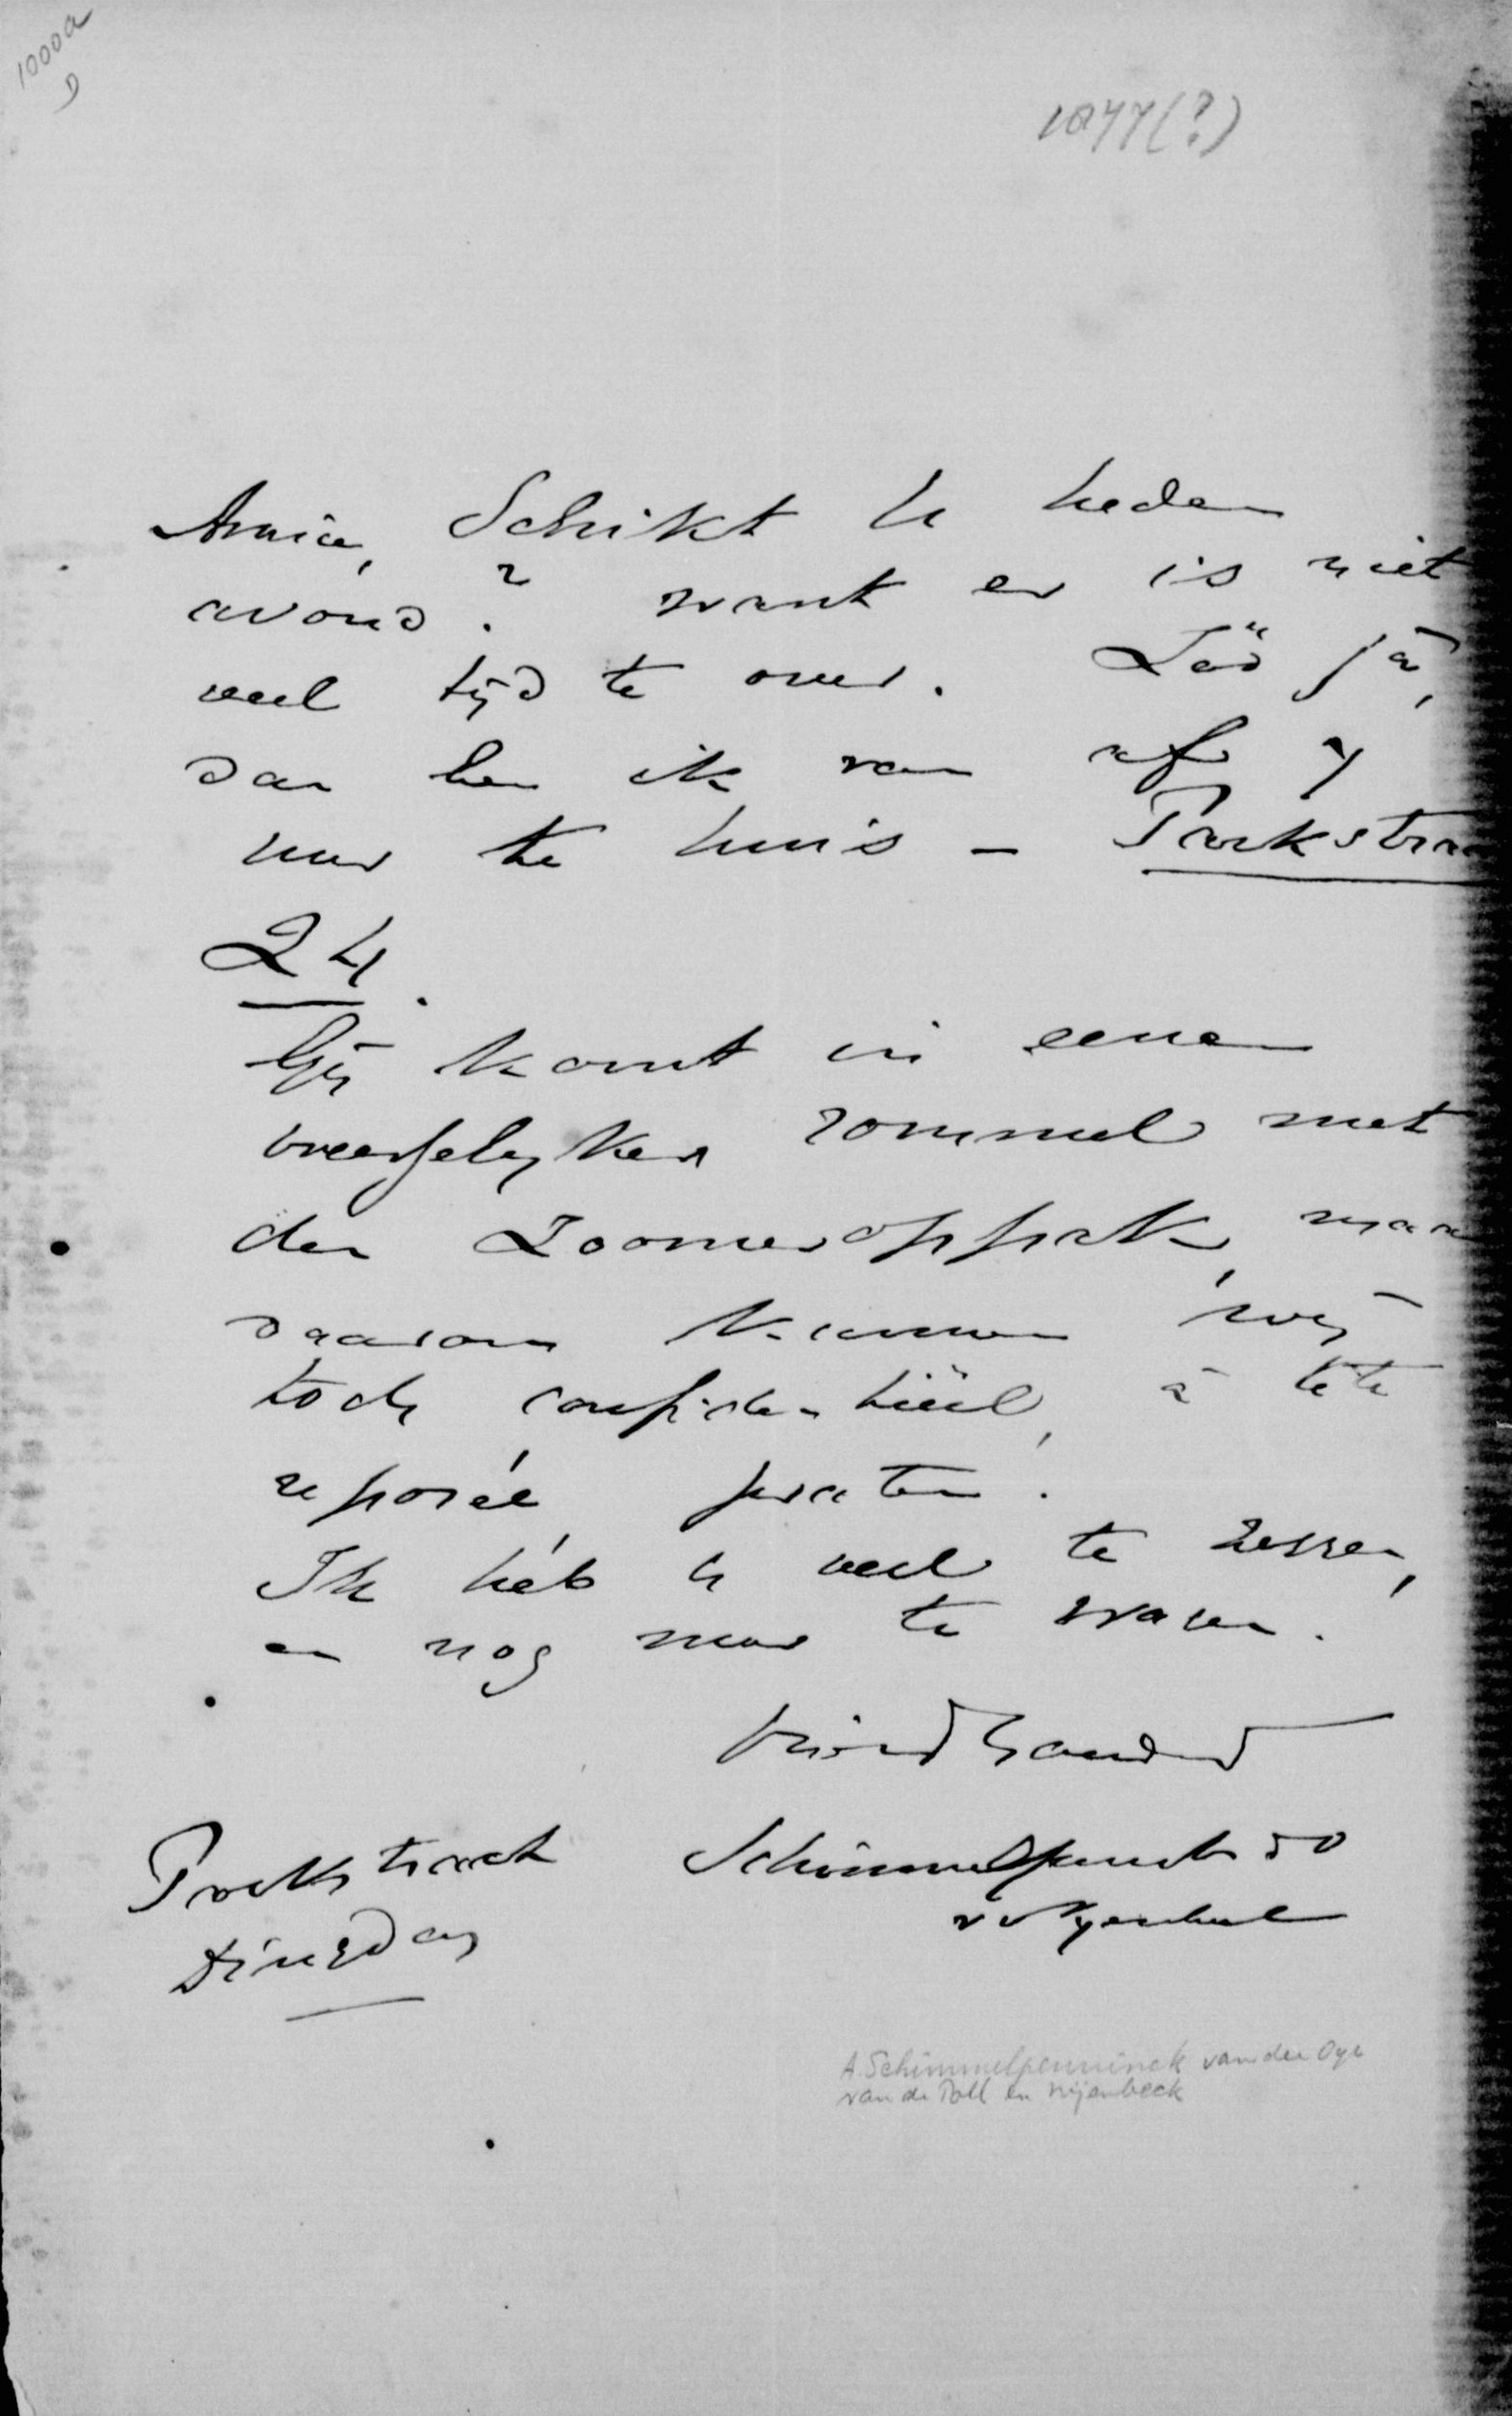 1000a
D
1877(?)
Amice, Schikt U heden
avond? want er is niet
veel tijd te over. Zoo ja,
dan ben ik van af 7
uur te huis - Parkstraa
24.
Gij komt in eenen
vreesselyken rommel met
den Zoomeroppak, maar
daarom kunnen wij
toch confidentiëel, à tête
reposée, praten.
Ik heb U veel te zeggen,
en nog meer te vragen.
Schimmelpenck vd
v Nyenbeek
Parkstraat
Dingsdag
A. Schimmelpenninck van der Oye
van de Poll en Nijenbeek